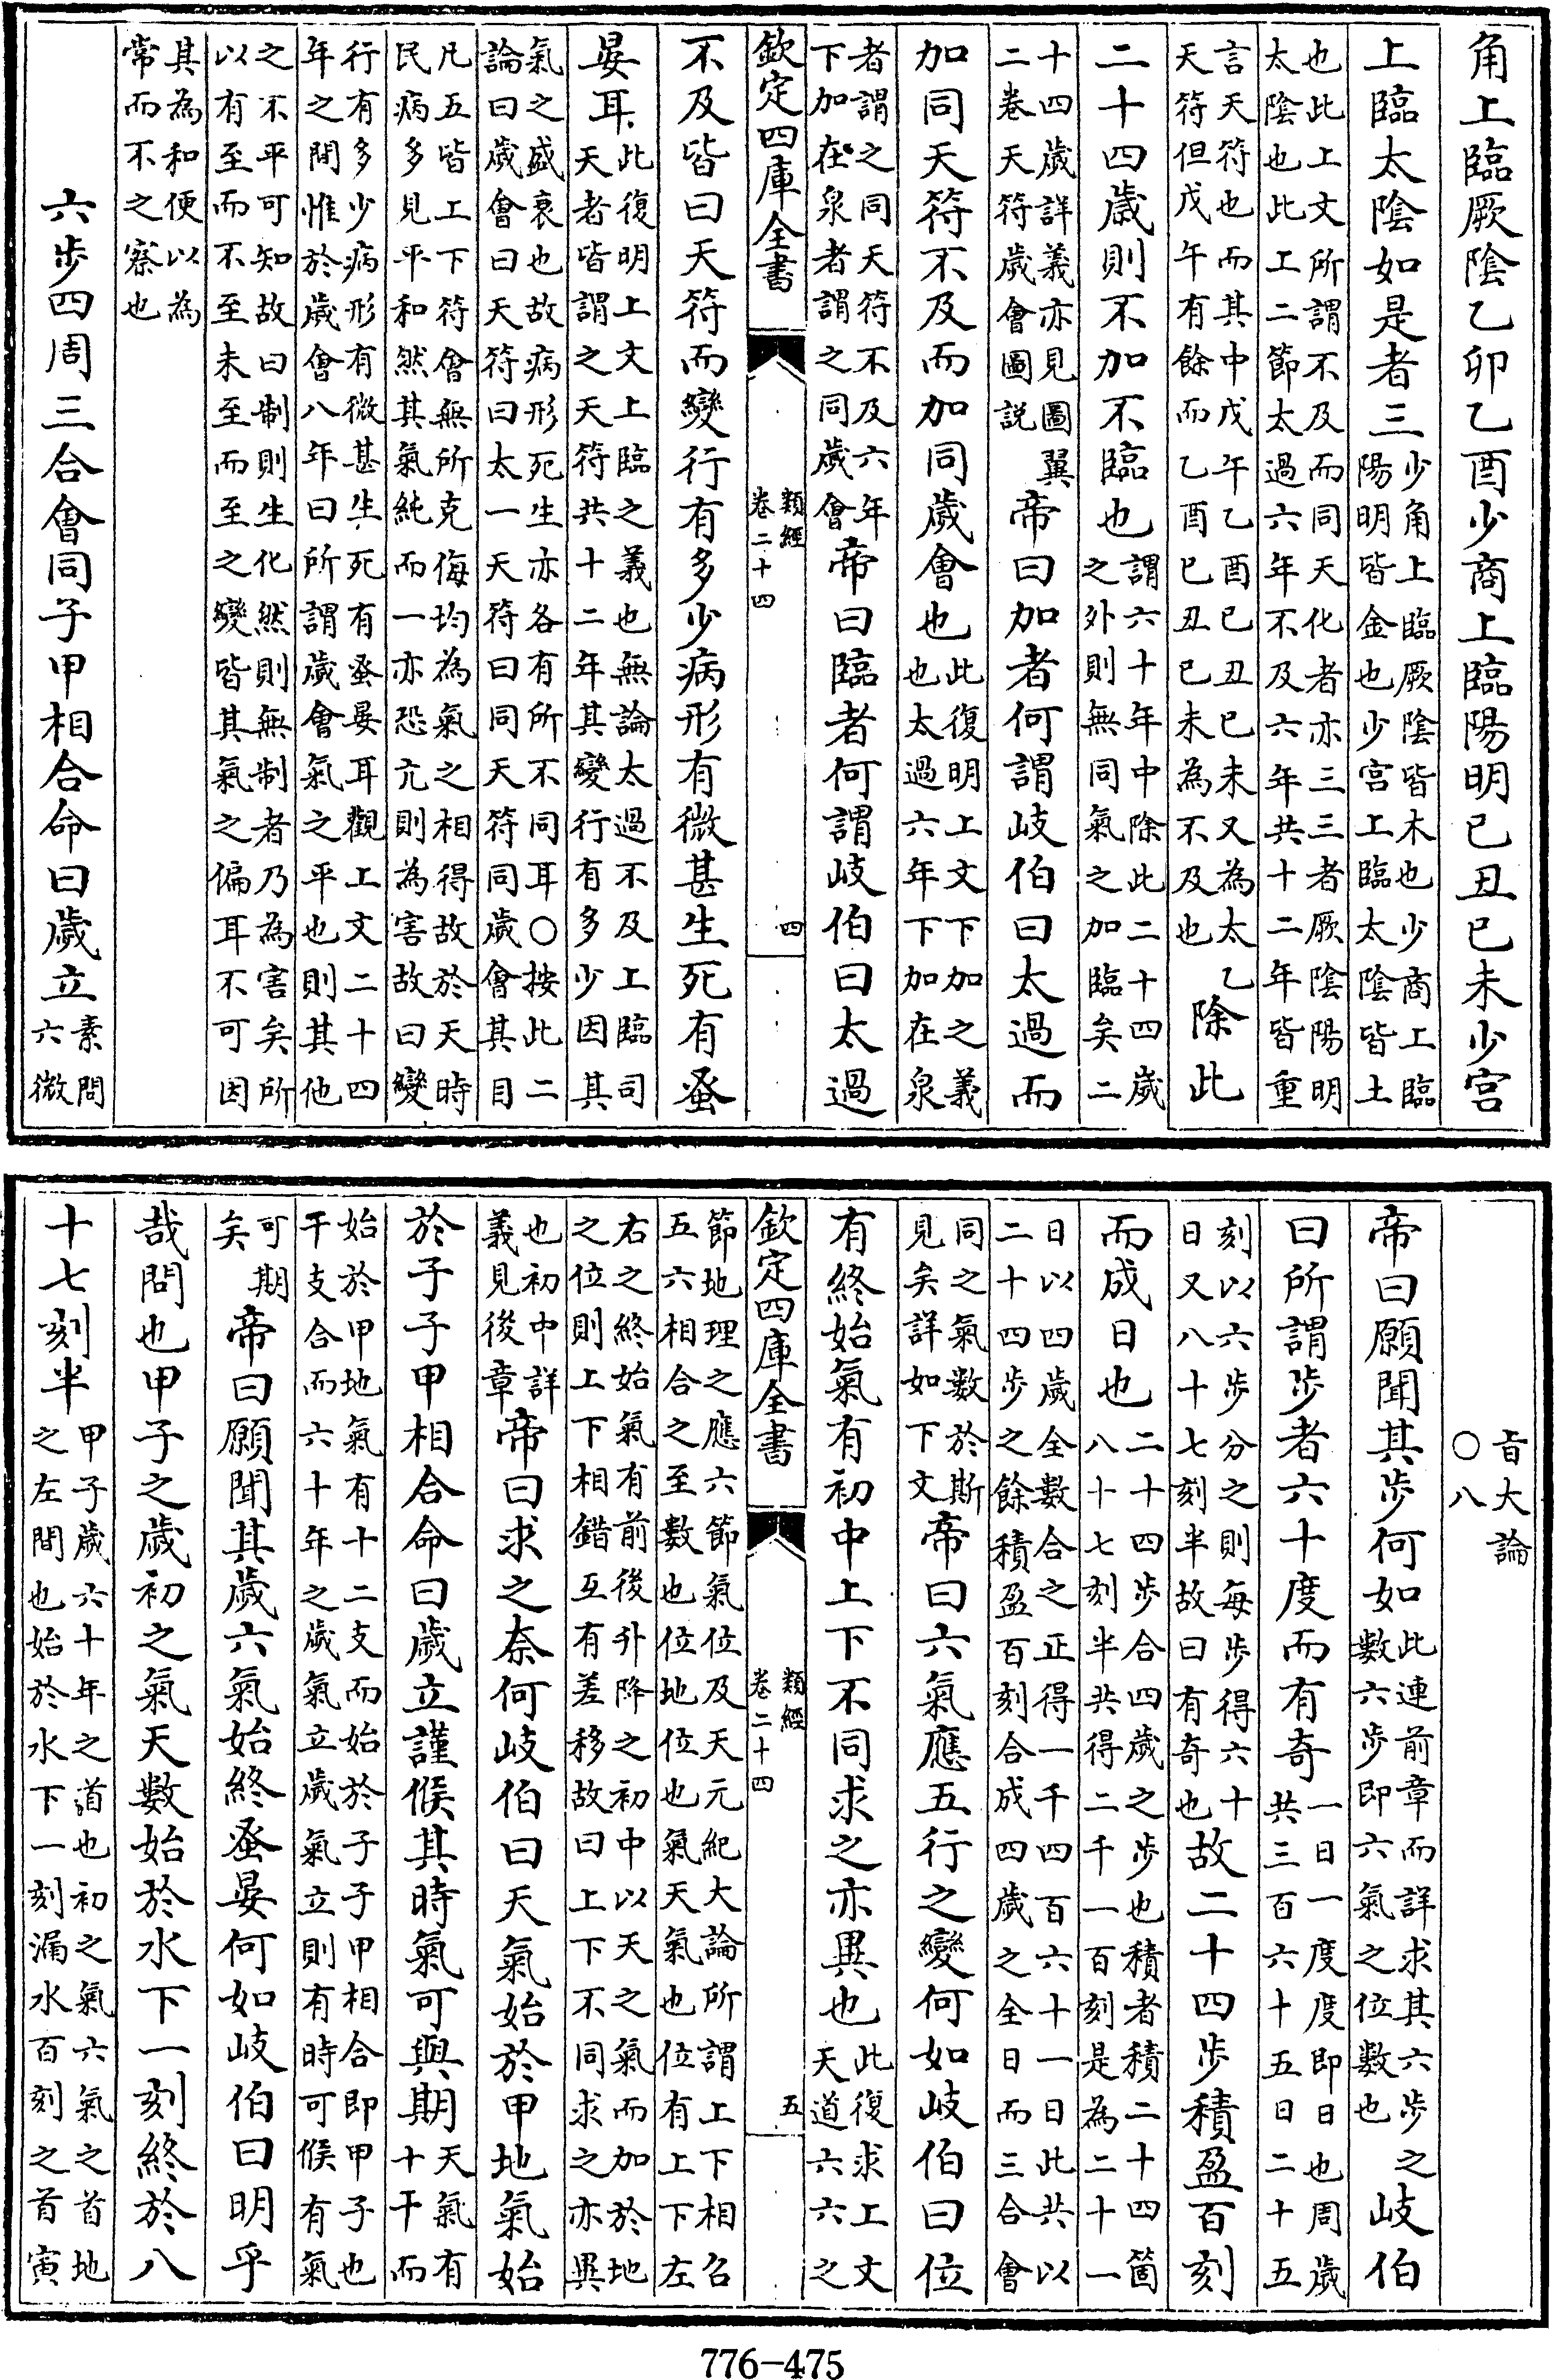 角上臨厥隂乙卯乙酉少商上臨陽明已丑已未少宫
上臨太隂如是者三少角上臨厥隂皆木也少商上臨陽明皆金也少宫上臨太隂皆土
也此上文所謂不及而同天化者亦三三者厥隂陽明太隂也此上二節太過六年不及六年共十二年皆重
言天符也而其中戊午乙酉已丑已未又為太乙天符但戊午有餘而乙酉已丑已未為不及也除此
二十四歲則不加不臨也謂六十年中除此二十四歲之外則無同氣之加臨矣二
十四歲詳義亦見圖翼二卷天符歲會圖説帝曰加者何謂岐伯曰太過而
加同天符不及而加同歲會也此復明上文下加之義也太過六年下加在泉
者謂之同天符不及六年下加在泉者謂之同歲會帝曰臨者何謂岐伯曰太過
欽定四庫全書 類經卷二十四 四
不及皆曰天符而變行有多少病形有微甚生死有蚤
晏耳此復明上文上臨之義也無論太過不及上臨司天者皆謂之天符共十二年其變行有多少因其
氣之盛衰也故病形死生亦各有所不同耳○按此二論曰歲會曰天符曰太一天符曰同天符同歲會其目
凡五皆上下符會無所克侮均為氣之相得故於天時民病多見平和然其氣純而一亦恐亢則為害故曰變
行有多少病形有微甚生死有蚤晏耳觀上文二十四年之間惟於歲會八年曰所謂歲會氣之平也則其他
之不平可知故曰制則生化然則無制者乃為害矣所以有至而不至未至而至之變皆其氣之偏耳不可因
其為和便以為常而不之察也
六步四周三合會同子甲相合命曰歲立素問六微
旨大論○八
帝曰願聞其步何如此連前章而詳求其六步之數六步即六氣之位數也岐伯
曰所謂步者六十度而有奇一日一度度即日也周歲共三百六十五日二十五
刻以六步分之則每步得六十日又八十七刻半故曰有奇也故二十四步積盈百刻
而成日也二十四步合四歲之步也積者積二十四箇八十七刻半共得二千一百刻是為二十一
日以四歲全數合之正得一千四百六十一日此共以二十四步之餘積盈百刻合成四歲之全日而三合會
同之氣數於斯見矣詳如下文帝曰六氣應五行之變何如岐伯曰位
有終始氣有初中上下不同求之亦異也此復求上文天道六六之
欽定四庫全書 類經卷二十四 五
節地理之應六節氣位及天元紀大論所謂上下相召五六相合之至數也位地位也氣天氣也位有上下左
右之終始氣有前後升降之初中以天之氣而加於地之位則上下相錯互有差移故曰上下不同求之亦異
也初中詳義見後章帝曰求之奈何岐伯曰天氣始於甲地氣始
於子子甲相合命曰歲立謹候其時氣可與期天氣有十干而
始於甲地氣有十二支而始於子子甲相合即甲子也干支合而六十年之歲氣立歲氣立則有時可候有氣
可期矣帝曰願聞其歲六氣始終蚤晏何如岐伯曰明乎
哉問也甲子之歲初之氣天數始於水下一刻終於八
十七刻半甲子歲六十年之道也初之氣六氣之首地之左間也始於水下一刻漏水百刻之首寅
776-475